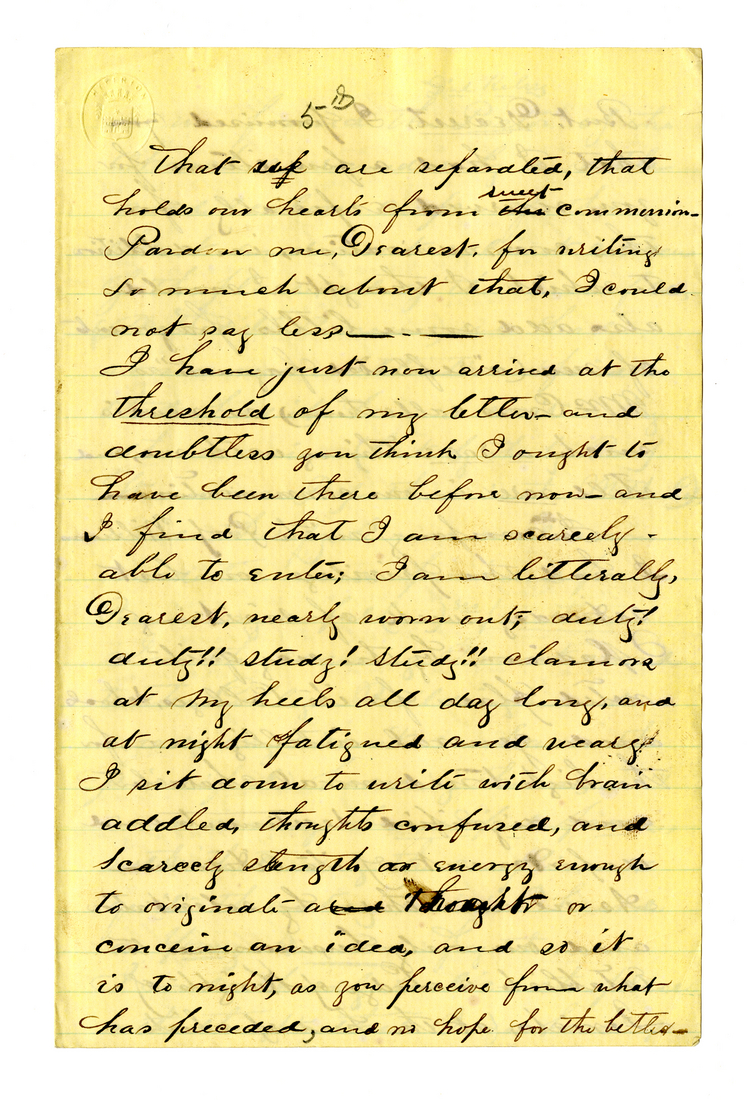 5th
that we are separated, that
holds our hearts from the sweet communion—
Pardon me, Dearest, for writing
so much about that, I could
not say less—.—
I have just now arrived at the
threshold of my letter— and
doubtless you think I ought to
have been there before now— and
I find that I am scarcely
able to enter; I am litterally,
Dearest, nearly worn out; duty!
duty!! study! study!! clamors
at my heels all day long, and
at night fatigued and weary
I sit down to write with brain
addled, thoughts confused, and
scarcely stength or energy enough
to originate a thought or
conceive an idea, and so it
is to night, as you perceive from what
has preceded, and no hope for the better—